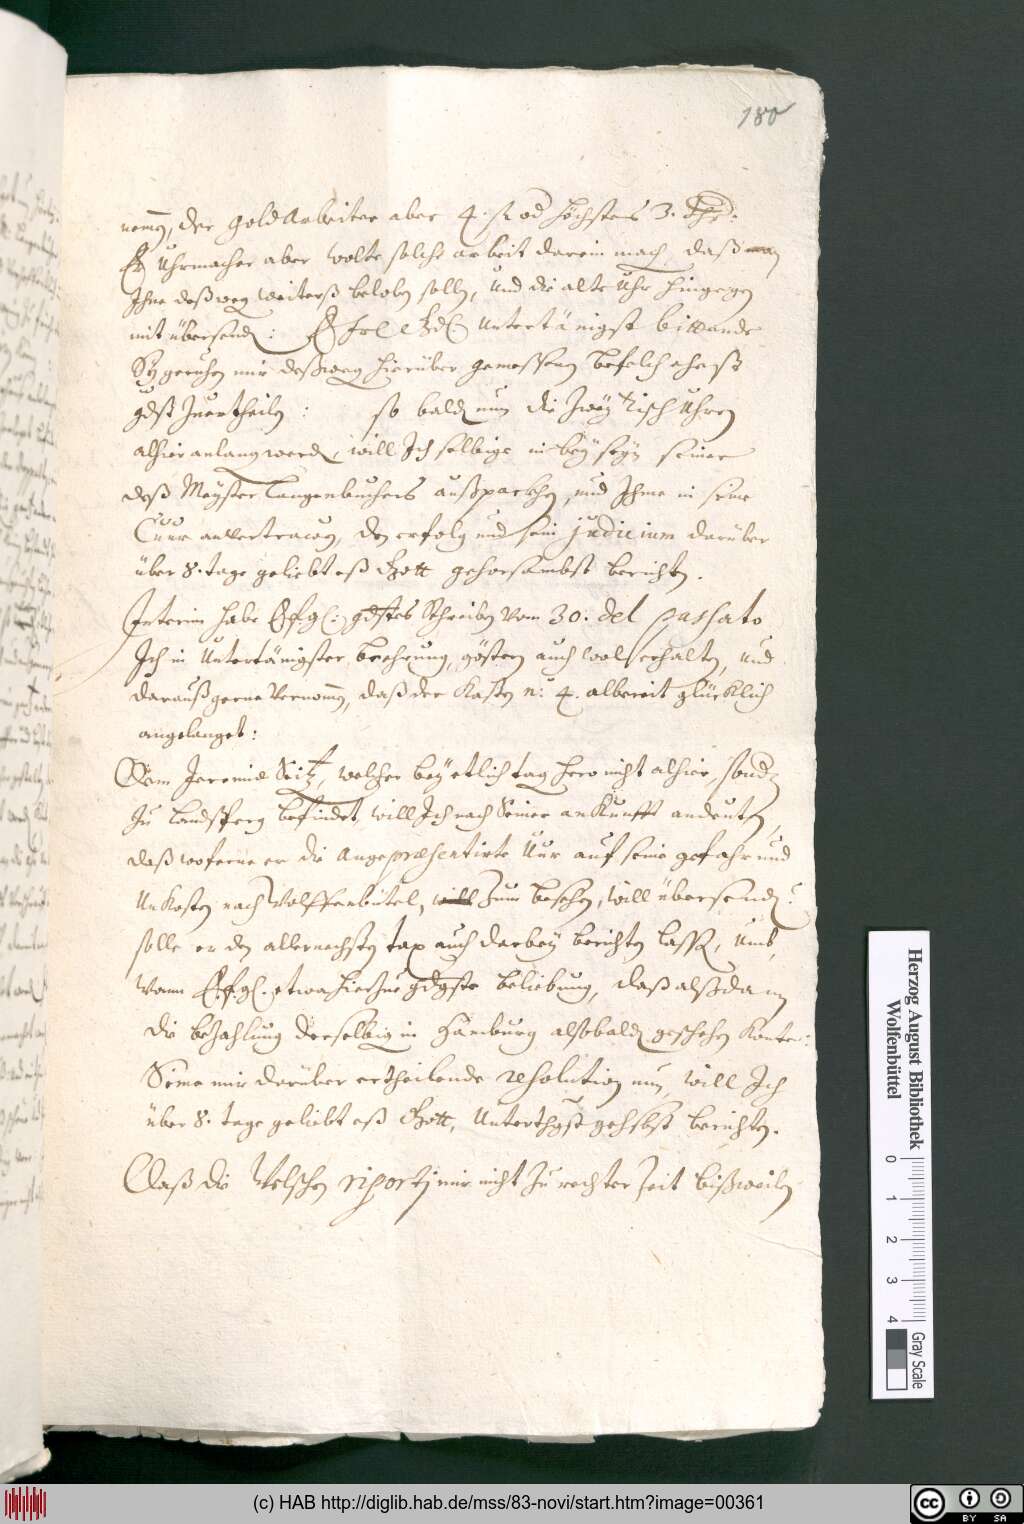 180
der Goldarbeiter aber 4. fl. od höchstens 3. Thlr.
Ein Uhrmacher aber wolte solche arbeit darein mach, daß man
Ihne deßweg weiterß beloben solle, und die alte Uhr hingegen
mit übersend: Untertänigst bittende
Sy geruhen mir deßweg hierüber gemessenen befelch ehest
gdst Zuertheilen: so bald nun die Zwey Tisch Uhren
alhier anlang werd, will Ich selbige in bey seyn seiner
deß Mayster Langenbuchers außpackhen, und Ihme in seine
Cuur anvertrawen, den erfolg und sein judicium darüber
über 8. tage geliebt eß Gott gehorsambst berichten.
Interim habe E. f. g. gdstes Schreiben vom 30. del passato
Ich in Untertänigster Beehrung, gösteren auch wol erhalten, und
darauß gerne vernommen, daß der Kasten n: 4. albereit glücklich
angelanget:
Dem Jeremiæ Seitz, welcher bey etlich tag hero nicht alhier, sond
Zu Landsperg befindet, will Ich nach Seiner ankunfft andeuten,
daß woferne er die angepræsentirte Uur auf seine gefahr und
Unkosten nach Wolffenbütel, will Zum besehen, will übersend?
solle er den allernechsten tax auch darbey berichten lassen, Umb,
wann E. f. g. etwa hierzue gdgste beliebung, daß alßdann
die bezahlung derselbig in Hamburg alsobald geschehen konte:
Seine mir darüber ertheilende resolution nun, will Ich
über 8. tage geliebt eß Gott, Unterthgst gehsbst berichten.
Daß die Welschen riporti mir nicht Zu rechter Zeit bißweilen
Herzog August Bibliothek
Wolfenbüttel
0 1 2 3 4
Gray Scale
(c) HAB http://diglib.hab.de/mss/83-novi/start.htm?image=00361
cc BY SA